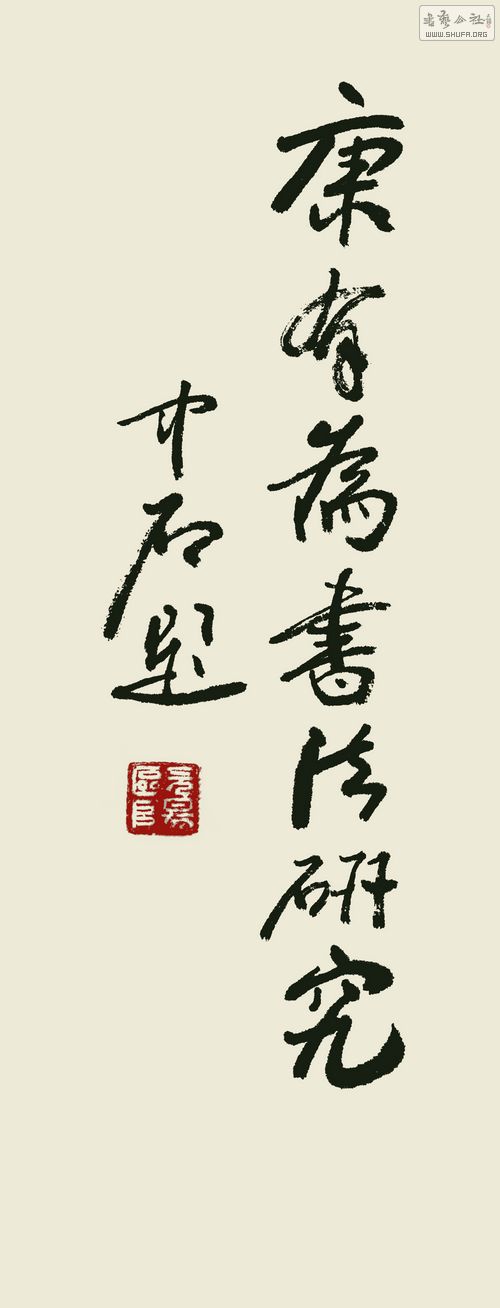 康有為書法研究
中石題
書藝公社
WWW.SHUFA.ORG